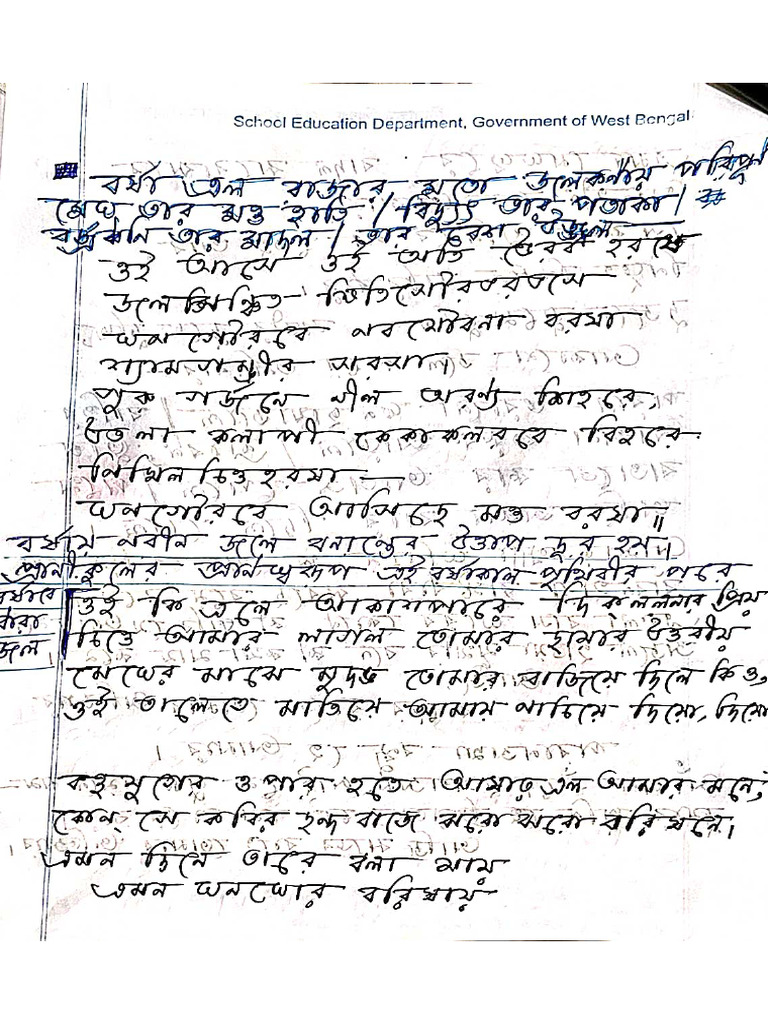 School Education Department, Government of West Bengal
বর্ষা এল রাজার মতো জলকণায় পরিপূর্ণ
মেঘ তার মত্ত হাতি / বিদ্যুৎ তার পতাকা /
বজ্রধ্বনি তার মাদল / তার বেশ উজ্জ্বল
ওই আসে ওই অতি ভৈরব হরষে
জলসিঞ্চিত ক্ষিতিসৌরভরভসে
ঘনগৌরবে নবযৌবনা বরষা
শ্যামগম্ভীর সরসা।
গুরু গর্জনে নীল অরণ্য শিহরে,
উতলা কলাপী কেকাকলরবে বিহরে
নিখিলচিত্তহরষা —
ঘনগৌরবে আসিছে মত্ত বরষা॥
বর্ষায় নবীন জলে বনান্তের উত্তাপ দূর হয়।
প্রাণীকুলের প্রাণস্বরূপ এই বর্ষাকাল পৃথিবীর পরে
বর্ষাবে
ধারা
জল
ওই কি এলে আকাশপারে দিকললনার প্রিয়
চিত্তে আমার লাগল তোমার ছায়ার উত্তরীয়
মেঘের মাঝে মৃদঙ্গ তোমার বাজিয়ে দিলে কি ও,
ওই তালেতে মাতিয়ে আমায় নাচিয়ে দিয়ো, দিয়ো
বহুযুগের ওপার হতে আষাঢ় এল আমার মনে,
কোন্ সে কবির ছন্দ বাজে ঝরো ঝরো বরিষনে।
এমন দিনে তারে বলা যায়
এমন ঘনঘোর বরিষায়